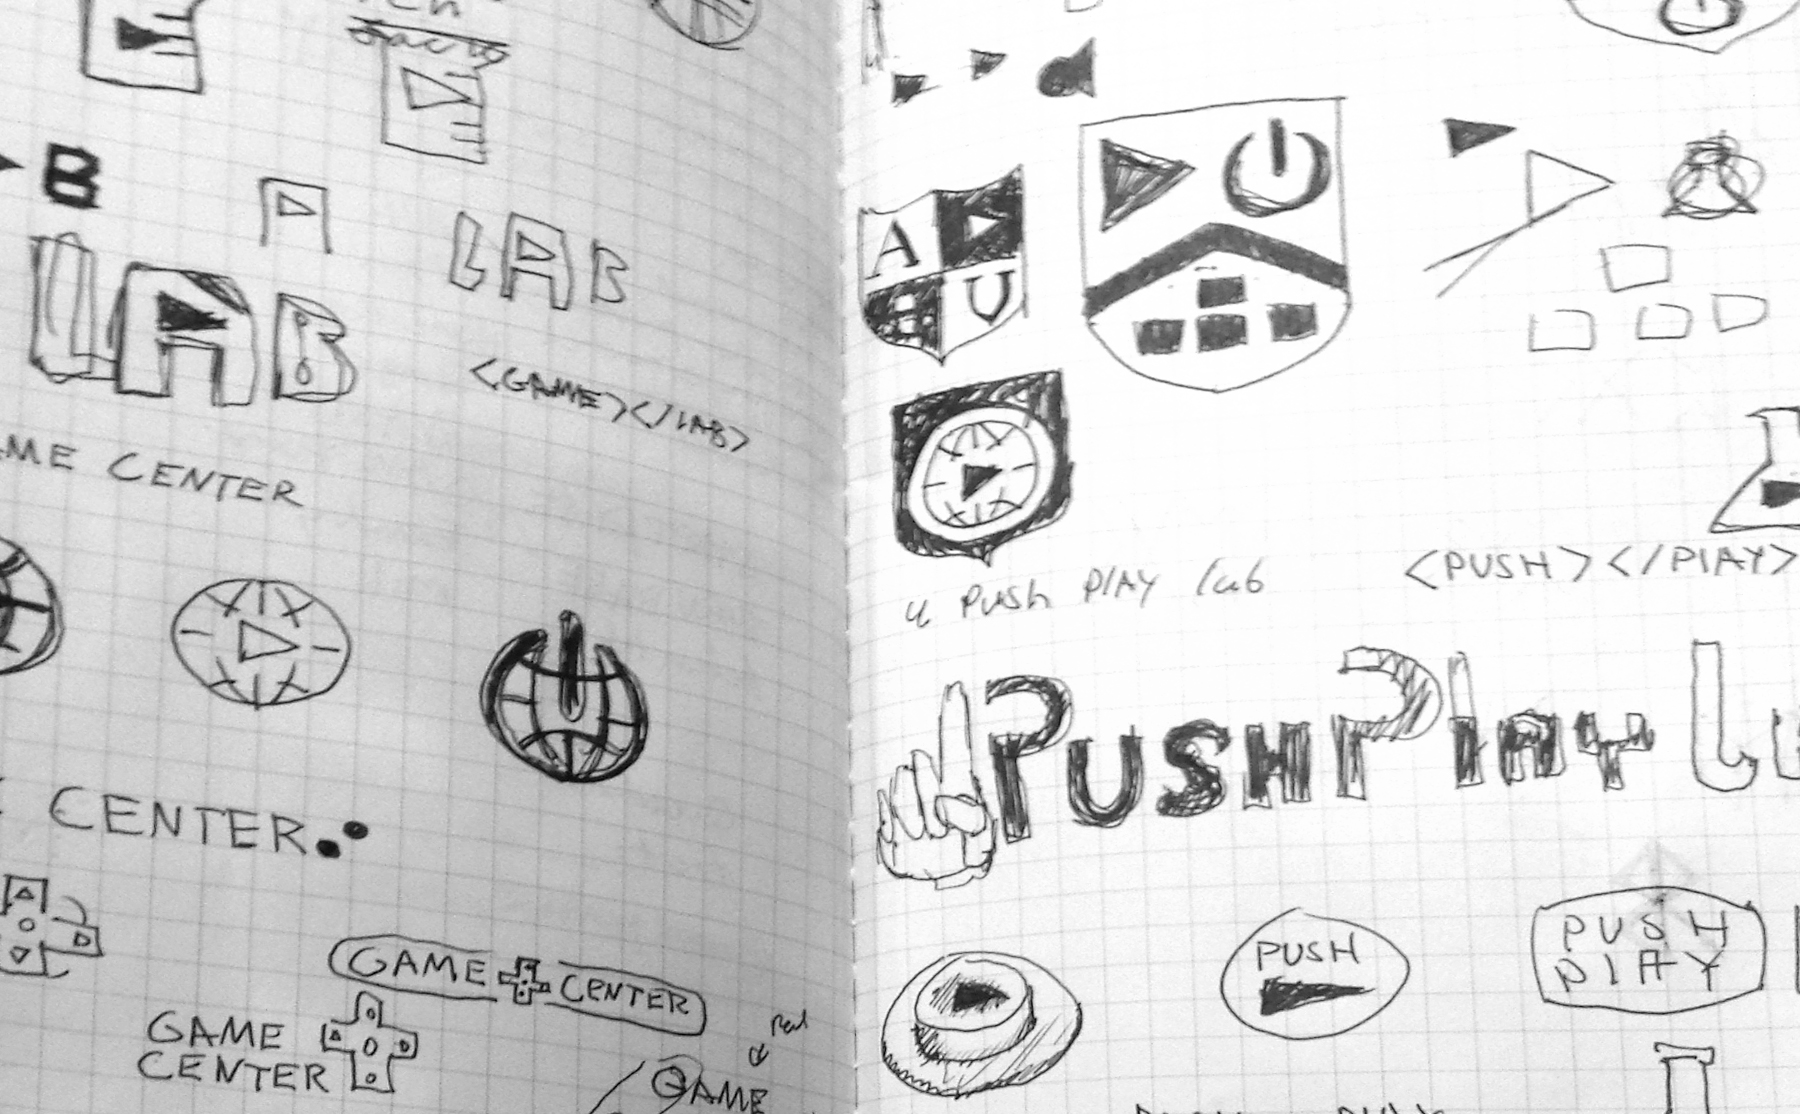 B
A
LAB
LAB
<GAME></LAB>
AME CENTER
CENTER
GAME CENTER
GAME
CENTER
GAME
A
U
PUSH PlAY lab
<PUSH></PlAY>
PUSHPlAY L
PUSH
PUSH
PlAY